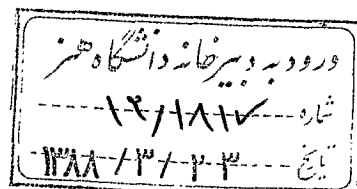 ورود به دبیرخانه دانشگاه هنر
شماره ۱۴/۱۸۱۷
تاریخ ۱۳۸۸/۳/۲۳